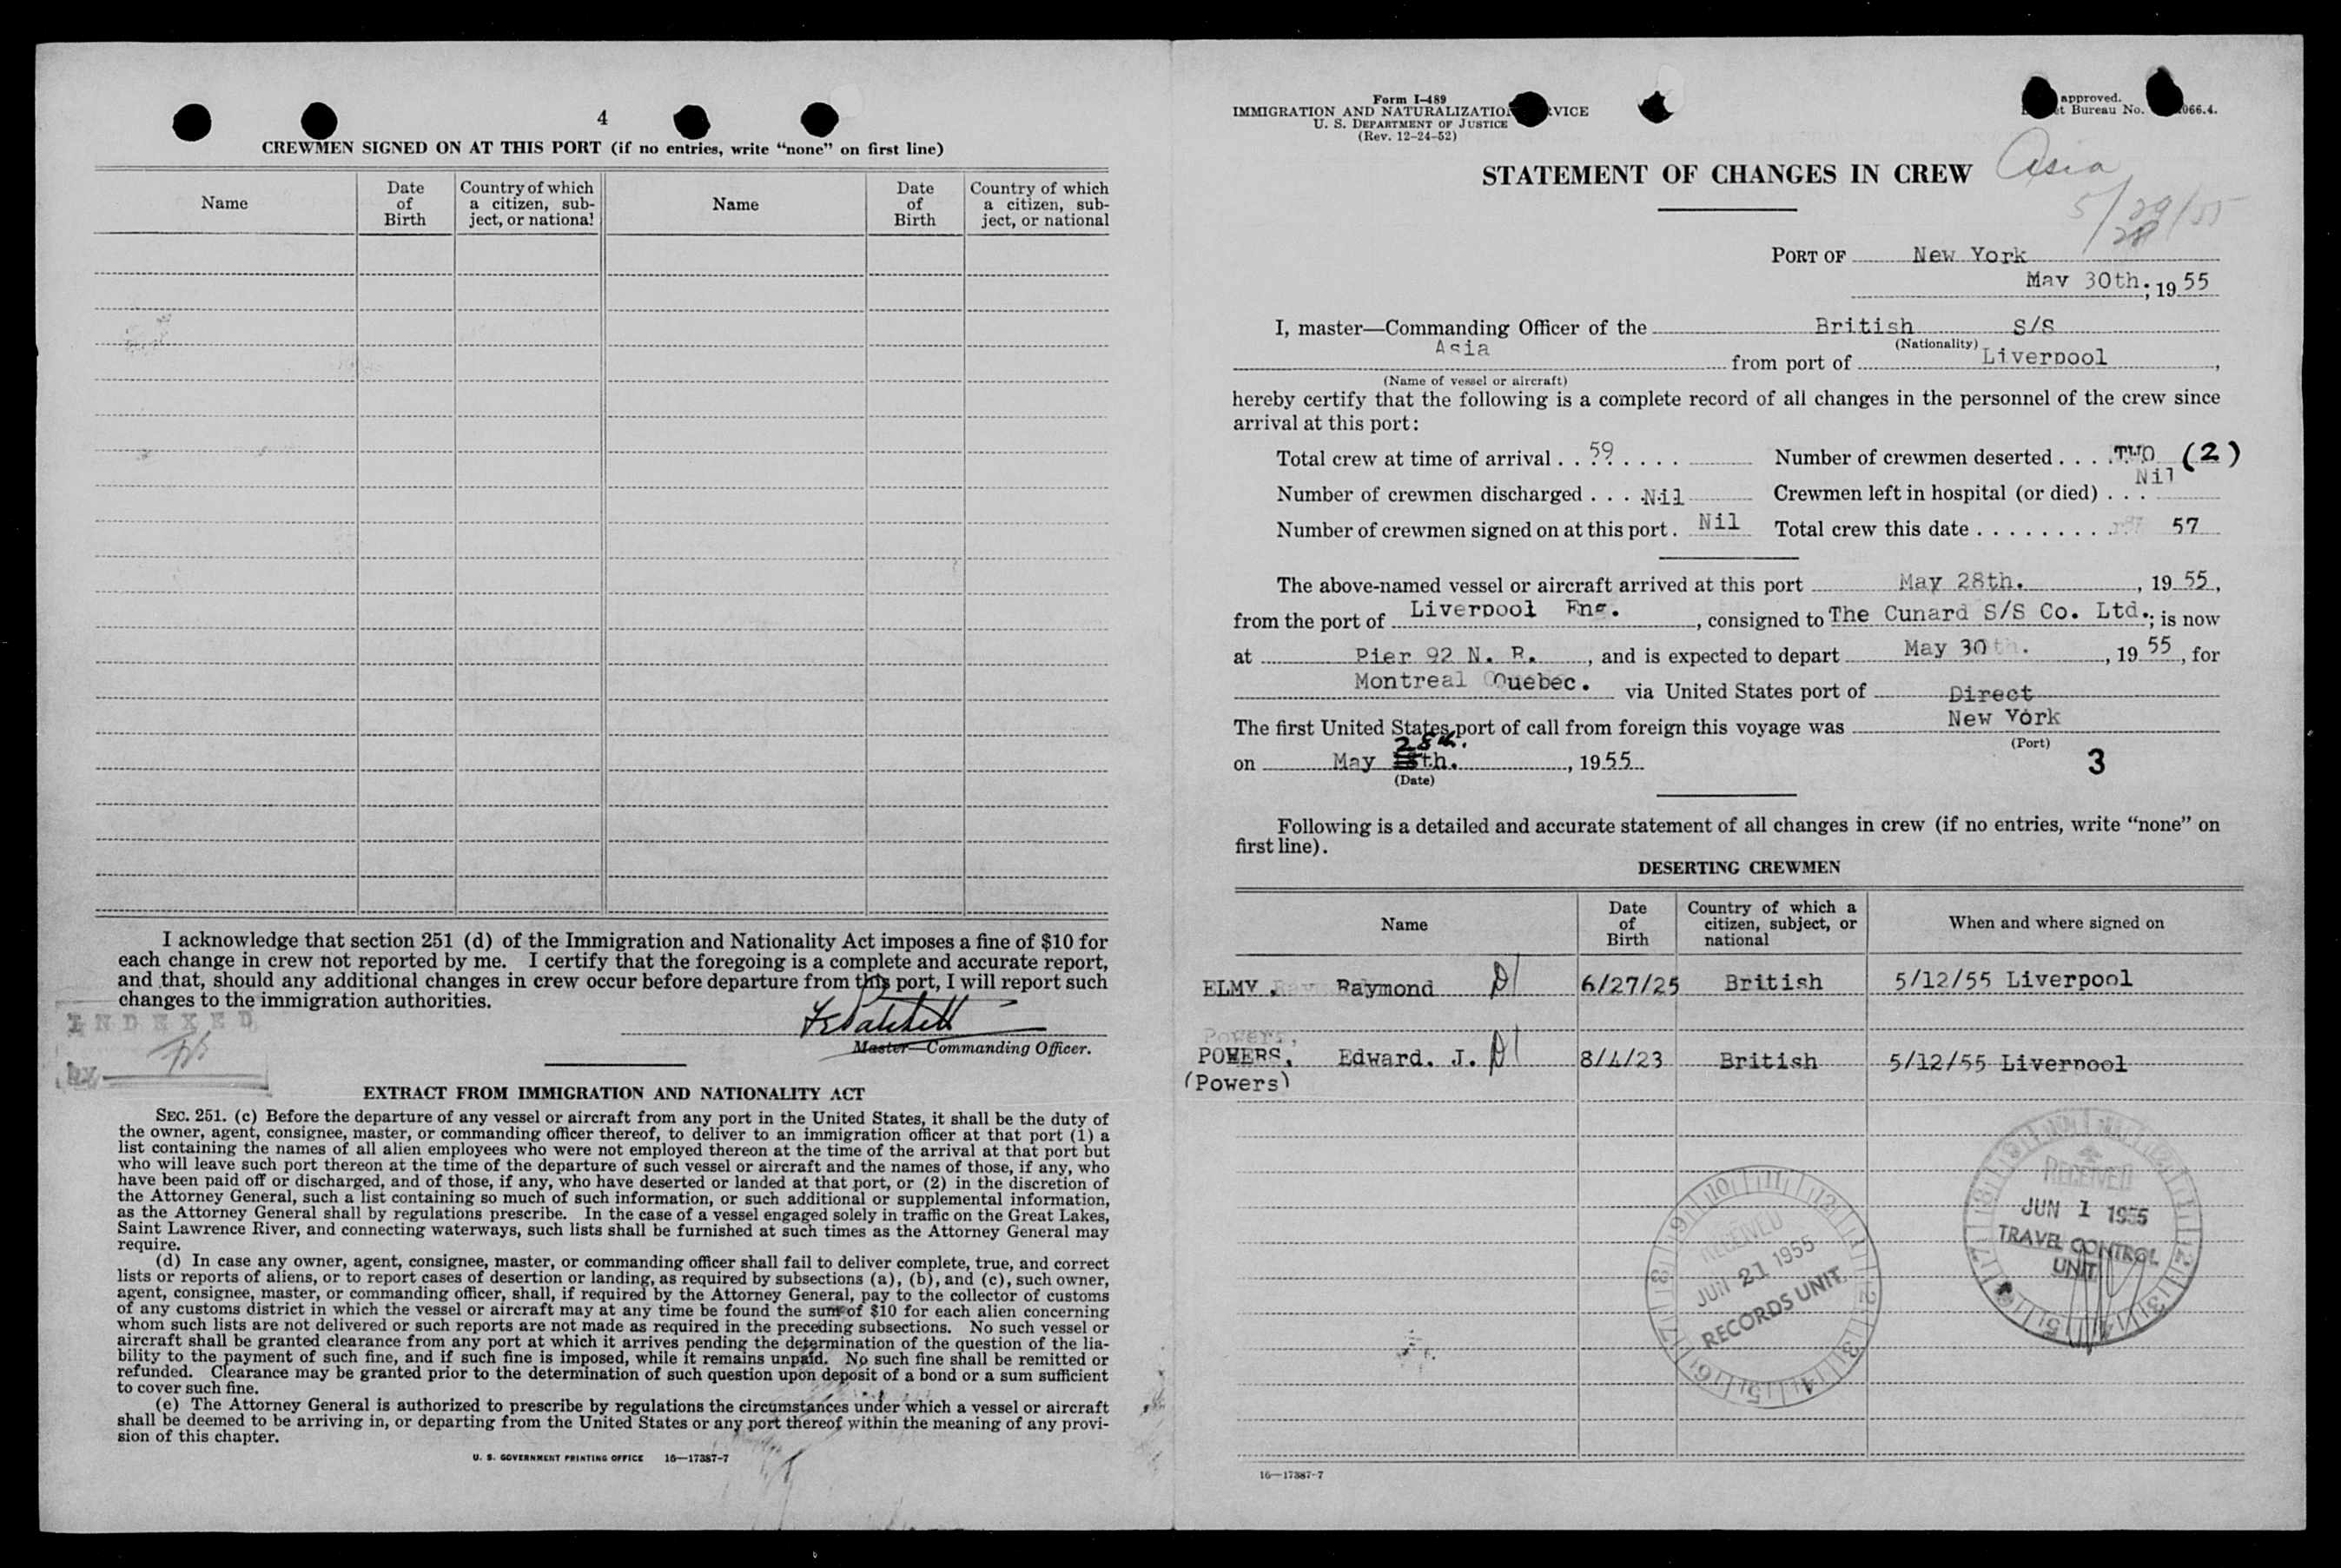 4
CREWMEN SIGNED ON AT THIS PORT (if no entries, write “none” on first line)
Name
Date of Birth
Country of which a citizen, subject, or national
Name
Date of Birth
Country of which a citizen, subject, or national
I acknowledge that section 251 (d) of the Immigration and Nationality Act imposes a fine of $10 for
each change in crew not reported by me. I certify that the foregoing is a complete and accurate report,
and that, should any additional changes in crew occur before departure from this port, I will report such
changes to the immigration authorities.
INDEXED
Master—Commanding Officer.
EXTRACT FROM IMMIGRATION AND NATIONALITY ACT
SEC. 251. (c) Before the departure of any vessel or aircraft from any port in the United States, it shall be the duty of
the owner, agent, consignee, master, or commanding officer thereof, to deliver to an immigration officer at that port (1) a
list containing the names of all alien employees who were not employed thereon at the time of the arrival at that port but
who will leave such port thereon at the time of the departure of such vessel or aircraft and the names of those, if any, who
have been paid off or discharged, and of those, if any, who have deserted or landed at that port, or (2) in the discretion of
the Attorney General, such a list containing so much of such information, or such additional or supplemental information,
as the Attorney General shall by regulations prescribe. In the case of a vessel engaged solely in traffic on the Great Lakes,
Saint Lawrence River, and connecting waterways, such lists shall be furnished at such times as the Attorney General may
require.
(d) In case any owner, agent, consignee, master, or commanding officer shall fail to deliver complete, true, and correct
lists or reports of aliens, or to report cases of desertion or landing, as required by subsections (a), (b), and (c), such owner,
agent, consignee, master, or commanding officer, shall, if required by the Attorney General, pay to the collector of customs
of any customs district in which the vessel or aircraft may at any time be found the sum of $10 for each alien concerning
whom such lists are not delivered or such reports are not made as required in the preceding subsections. No such vessel or
aircraft shall be granted clearance from any port at which it arrives pending the determination of the question of the lia-
bility to the payment of such fine, and if such fine is imposed, while it remains unpaid. No such fine shall be remitted or
refunded. Clearance may be granted prior to the determination of such question upon deposit of a bond or a sum sufficient
to cover such fine.
(e) The Attorney General is authorized to prescribe by regulations the circumstances under which a vessel or aircraft
shall be deemed to be arriving in, or departing from the United States or any port thereof within the meaning of any provi-
sion of this chapter.
U. S. GOVERNMENT PRINTING OFFICE 16—17387-7
Form I-489
IMMIGRATION AND NATURALIZATION SERVICE
U. S. DEPARTMENT OF JUSTICE
(Rev. 12-24-52)
approved.
Bureau No. 066.4.
STATEMENT OF CHANGES IN CREW
Asia
5/29/55
28
PORT OF New York
May 30th. , 19 55
I, master—Commanding Officer of the British S/S
(Nationality)
Asia from port of Liverpool ,
(Name of vessel or aircraft)
hereby certify that the following is a complete record of all changes in the personnel of the crew since
arrival at this port:
Total crew at time of arrival . . 59 . . . . Number of crewmen deserted . . . . TWO (2)
Number of crewmen discharged . . . Nil Crewmen left in hospital (or died) . . . Nil
Number of crewmen signed on at this port . Nil Total crew this date . . . . . . . . . 57
The above-named vessel or aircraft arrived at this port May 28th. , 19 55 ,
from the port of Liverpool Eng. , consigned to The Cunard S/S Co. Ltd. ; is now
at Pier 92 N. R. , and is expected to depart May 30th. , 19 55 , for
Montreal Quebec. via United States port of Direct
The first United States port of call from foreign this voyage was New York
(Port)
28th.
on May th. , 19 55
(Date)
3
Following is a detailed and accurate statement of all changes in crew (if no entries, write “none” on
first line).
DESERTING CREWMEN
Name
Date of Birth
Country of which a citizen, subject, or national
When and where signed on
ELMY . Raymond 6/27/25 British 5/12/55 Liverpool
Powers,
POWERS, Edward. J. 8/4/23 British 5/12/55 Liverpool
(Powers)
RECEIVED
JUN 21 1955
RECORDS UNIT
RECEIVED
JUN 1 1955
TRAVEL CONTROL
UNIT
16—17387-7